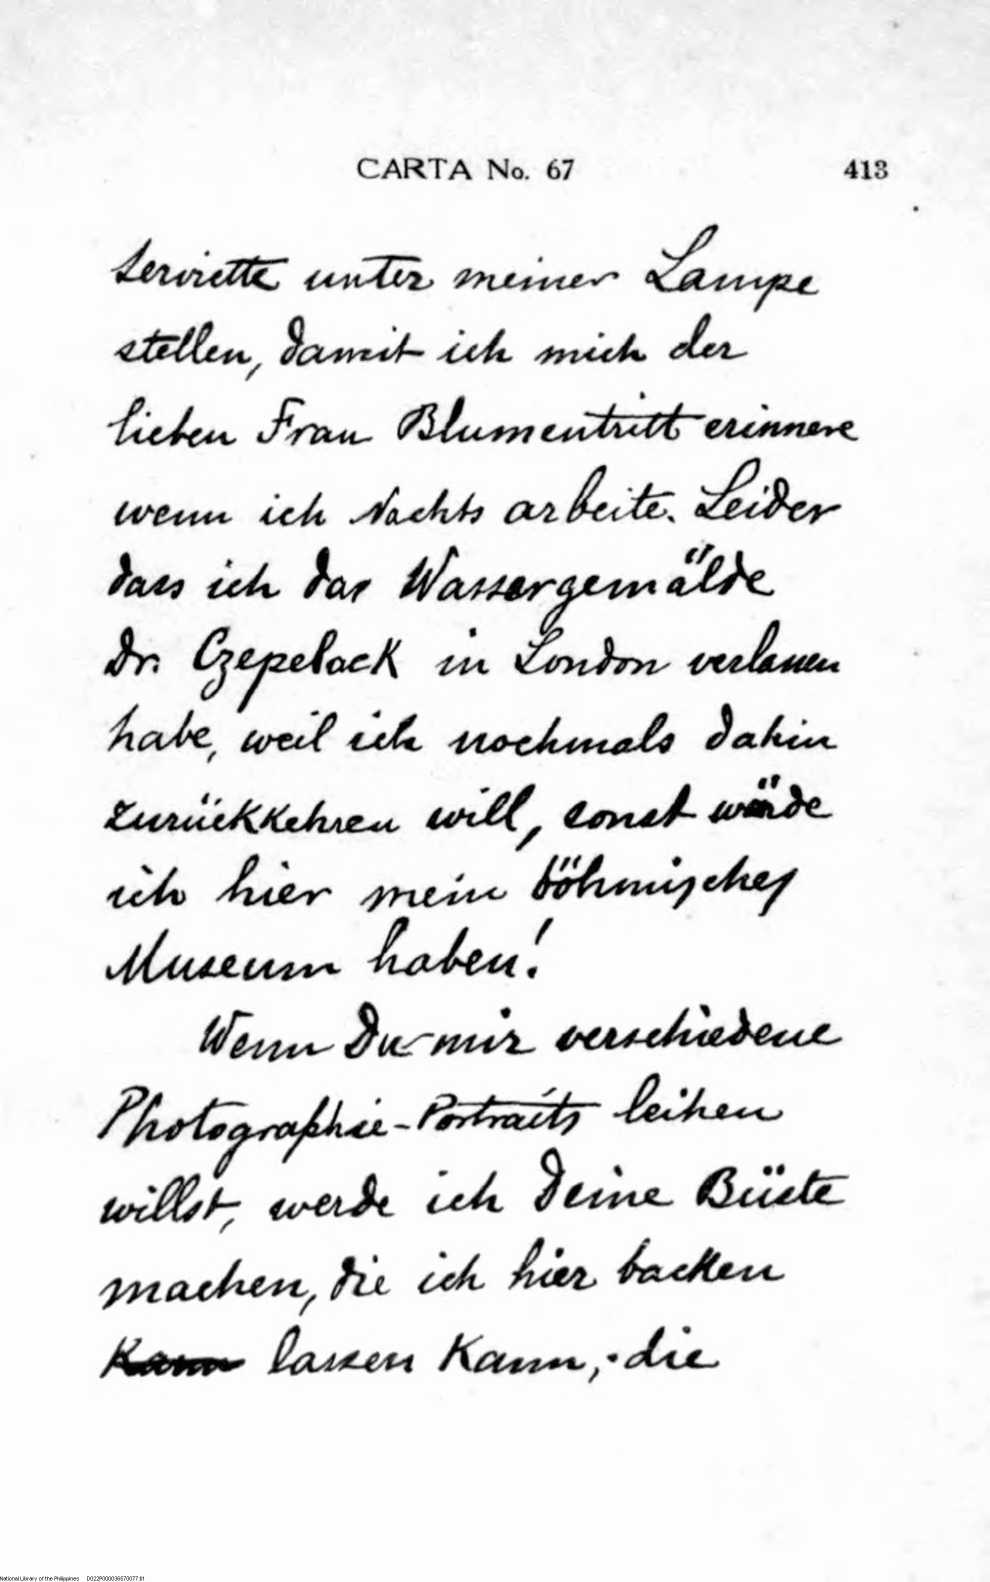 CARTA No. 67 413
Serviette unter meiner Lampe
stellen, damit ich mich der
lieben Frau Blumentritt erinnere
wenn ich Nachts arbeite. Leider
dass ich das Wassergemälde
Dr. Czepelack in London verlassen
habe, weil ich nochmals dahin
zurückkehren will, sonst würde
ich hier mein böhmisches
Museum haben!
Wenn Du mir verschiedene
Photographie-Portraits leihen
willst, werde ich Deine Büste
machen, die ich hier backen
Kann lassen Kann, die
National Library of the Philippines D022P000036570077.tif